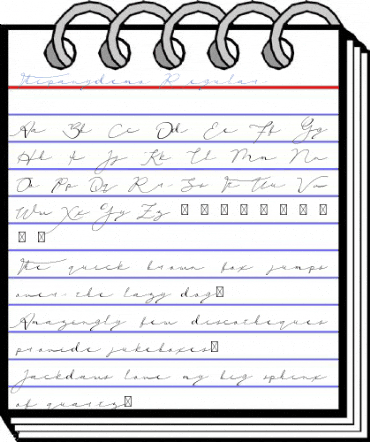 Regular
Aa Bb Cc Dd Ee Ff Gg
Hh Ii Jj Kk Ll Mm Nn
Oo Pp Qq Rr Ss Tt Uu Vv
Ww Xx Yy Zz
The quick brown fox jumps
over the lazy dog
Amazingly few discotheques
provide jukeboxes
Jackdaws love my big sphinx
of quartz